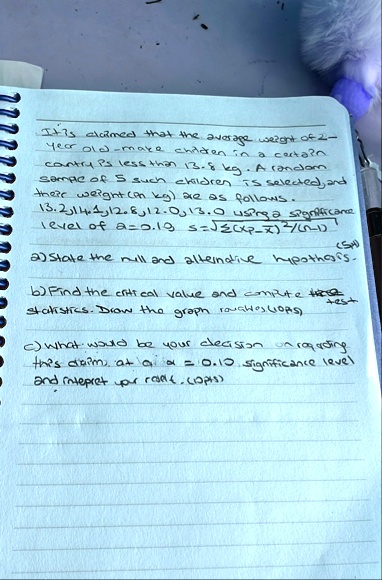 It is claimed that the average weight of 2-
year old -male children in a certain
country is less than 13.8 kg. A random
sample of 5 such children is selected, and
their weight (in kg) are as follows.
13.2, 14.1, 12.8, 12.0, 13.0 using a significance
level of a=0.10 s=√Σ(xi-x̄)²/(n-1)
(5pts)
a) State the null and alternative hypothesis.
b) Find the critical value and compute test
statistics. Draw the graph roughly (10pts)
c) What would be your decision on regarding
this claim, at α = 0.10 significance level
and intepret your result. (10pts)